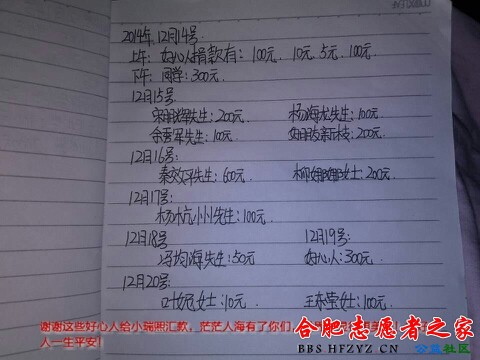 2014年12月14号
上午: 好心人捐款有: 100元、10元、5元、100元
下午: 同学: 300元.
12月15号
先生: 200元 杨海龙先生: 100元
余秀军先生: 100元 新枝: 200元
12月16号:
秦效环先生: 600元 柳 女士: 200元
12月17号:
杨杭州先生: 100元
12月18号 12月19号:
冯均海先生: 50元 好心人: 300元
12月20号:
叶冠女士: 10元 王东莹女士: 100元.
谢谢这些好心人给小瑞熙汇款,茫茫人海有了你们,
人一生平安!
合肥志愿者之家
公益社区
BBS HFZYZ CN